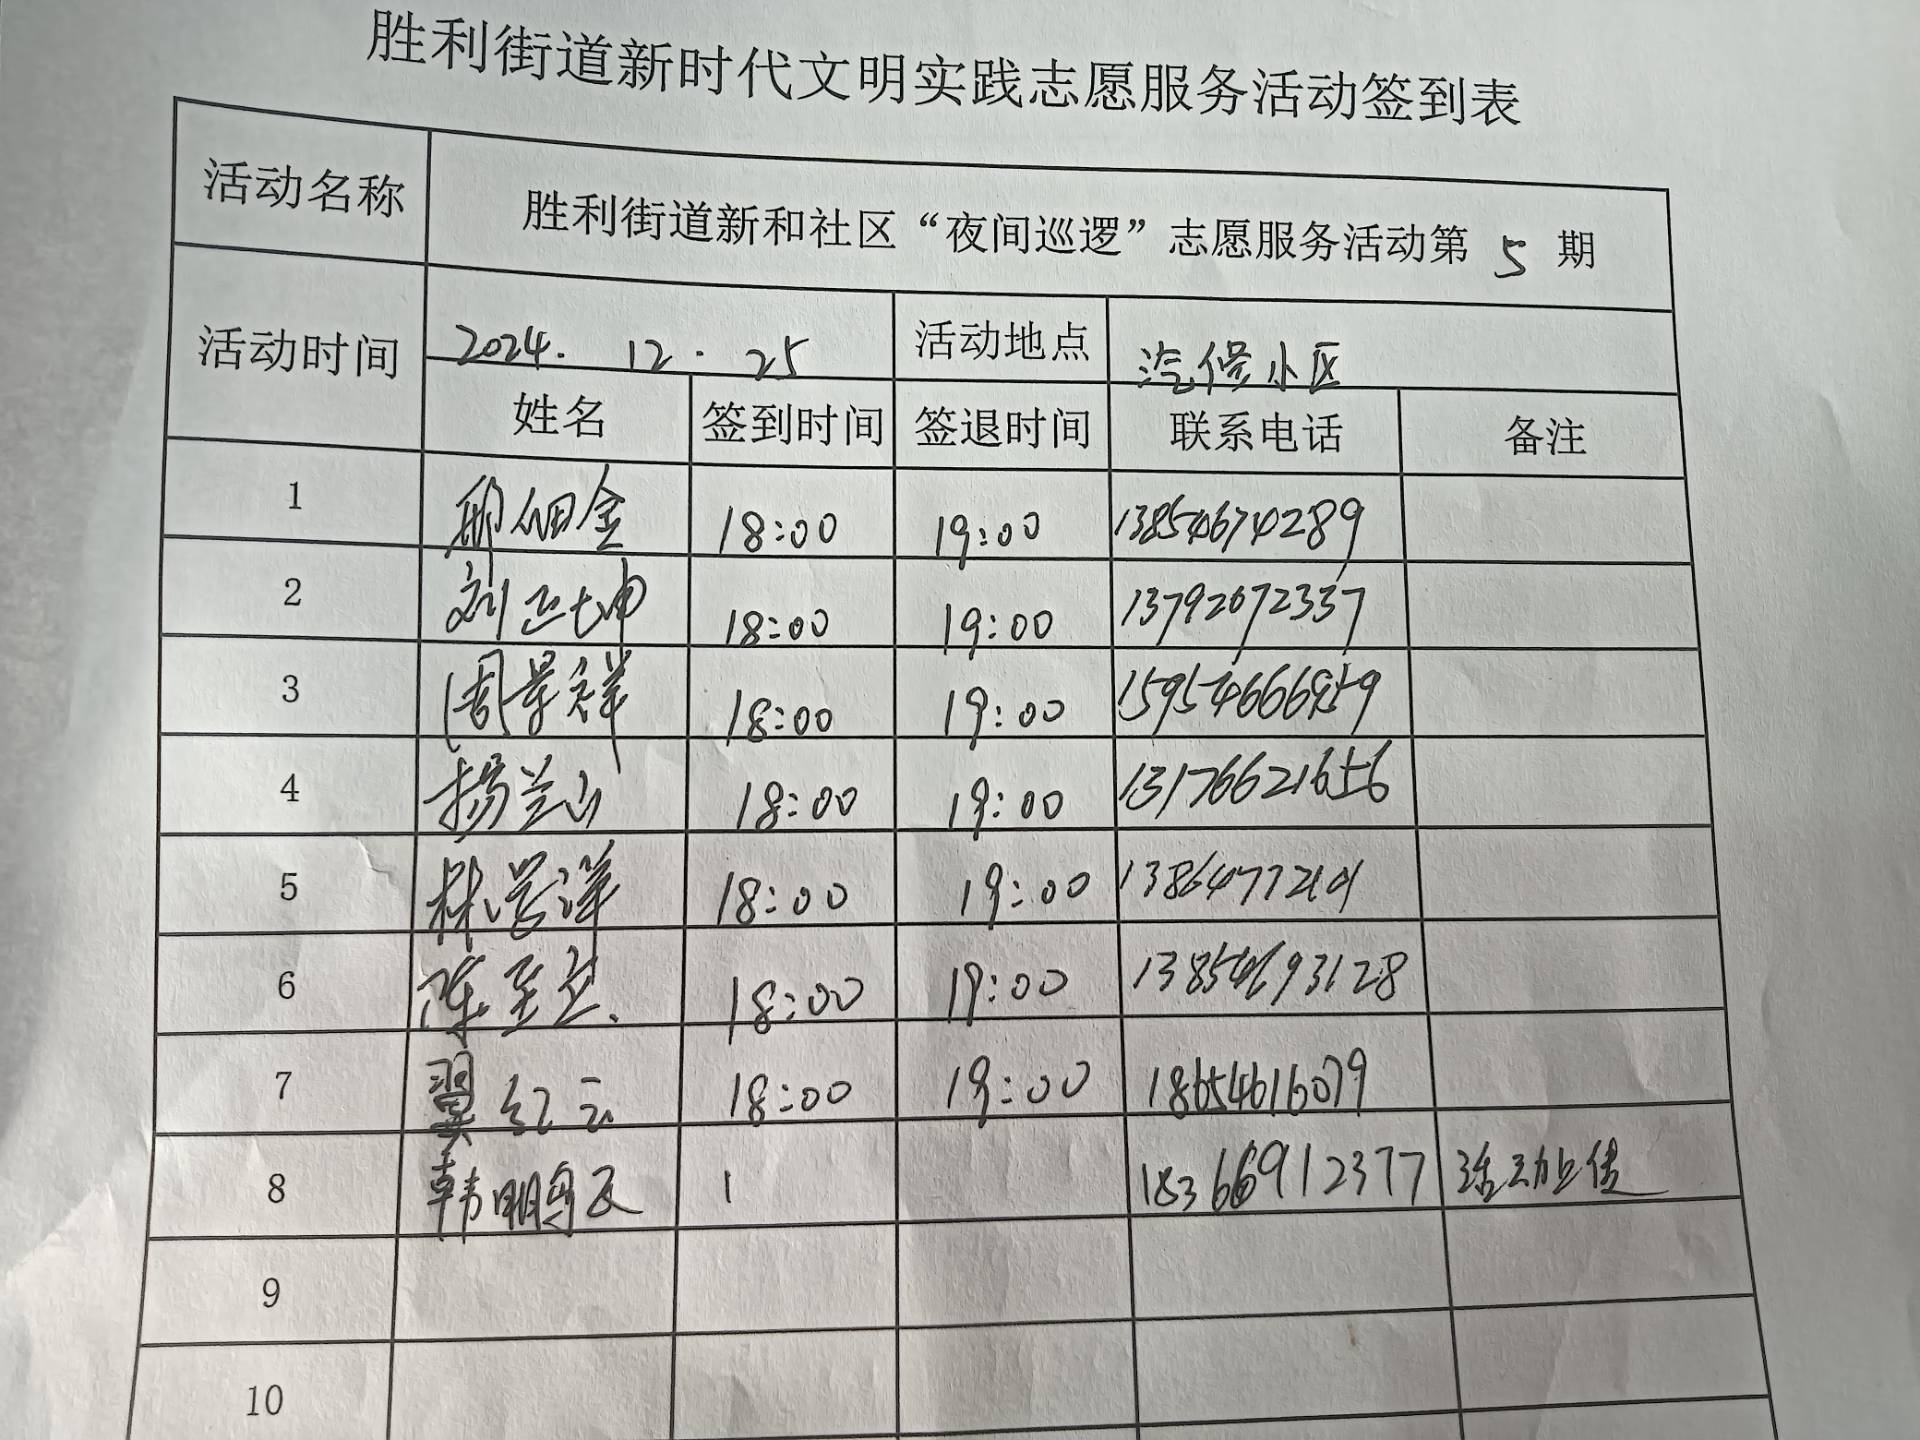 胜利街道新时代文明实践志愿服务活动签到表
活动名称 胜利街道新和社区“夜间巡逻”志愿服务活动第 5 期
活动时间 2024. 12. 25 活动地点 汽修小区
姓名 签到时间 签退时间 联系电话 备注
1 邢佃金 18:00 19:00 13854674289
2 刘正坤 18:00 19:00 13792072337
3 周景祥 18:00 19:00
4 杨兰山 18:00 19:00 13176621656
5 林学洋 18:00 19:00
6 陈至立 18:00 19:00 13854693128
7 翼红云 18:00 19:00 18654616079
8 韩明 18366912377 活动上传
9
10